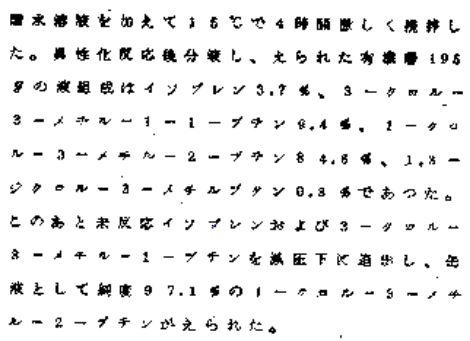 水溶液を加えて15℃で4時間激しく撹拌し
た。異性化反応後分液し、えられた有機層195
gの液組成はイソプレン3.7%、3-クロル-
3-メチル-1-ブテン %、1-クロ
ル-3-メチル-2-ブテン84.6%、1.3-
ジクロル-3-メチルブタン %であつた。
このあと未反応イソプレンおよび3-クロル-
3-メチル-1-ブテンを減圧下に追出し、缶
液として純度97.1%の1-クロル-3-メチ
ル-2-ブテンがえられた。